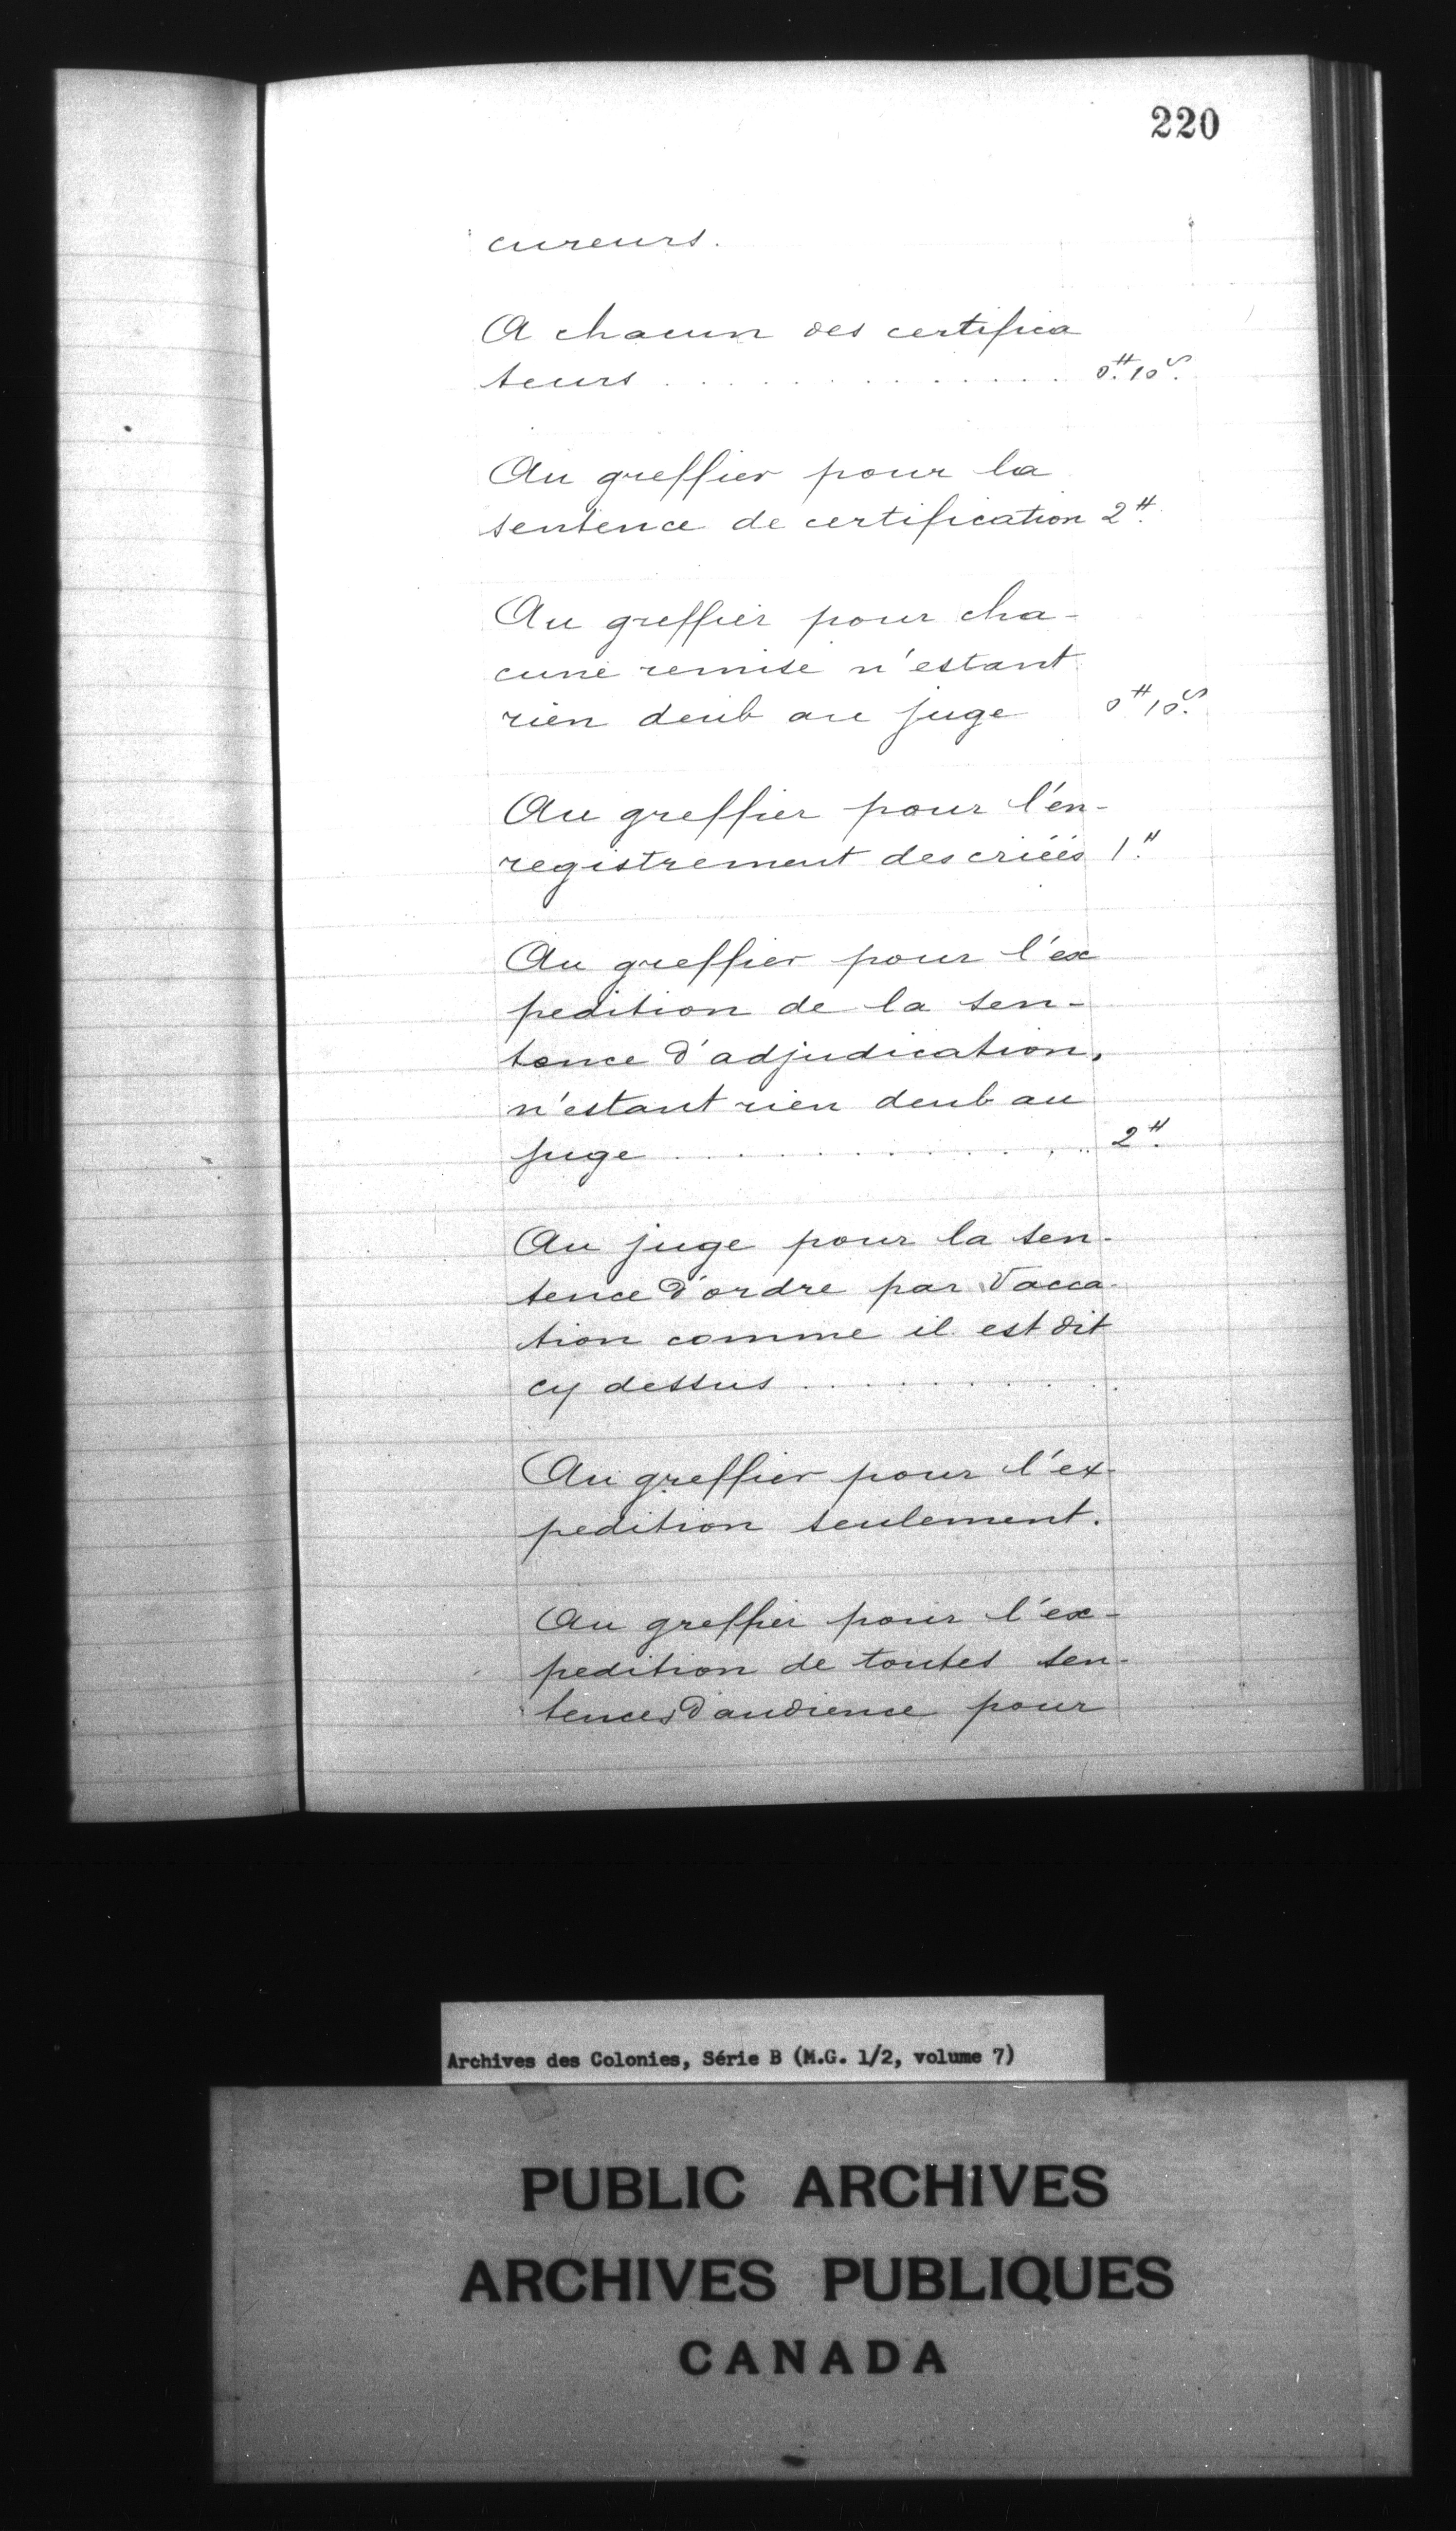 220
cureurs.
A chacun des certifica
teurs . . . . . . . . . . . . . . 0.# 10s.
Au greffier pour la
sentence de certification 2#.
Au greffier pour cha-
cune remise n'estant
rien deub au juge 0# 10s.
Au greffier pour l'en-
registrement des criées 1.#
Au greffier pour l'ex
pedition de la sen-
tence d'adjudication,
n'estant rien deub au
juge . . . . . . . . . . . . . . . 2#.
Au juge pour la sen-
tence d'ordre par Vacca-
tion comme il est dit
cy dessus . . . . . . . . . . .
Au greffier pour l'ex-
pedition seulement.
Au greffier pour l'ex-
pedition de toutes sen-
tences d'audience pour
Archives des Colonies, Série B (M.G. 1/2, volume 7)
PUBLIC ARCHIVES
ARCHIVES PUBLIQUES
CANADA